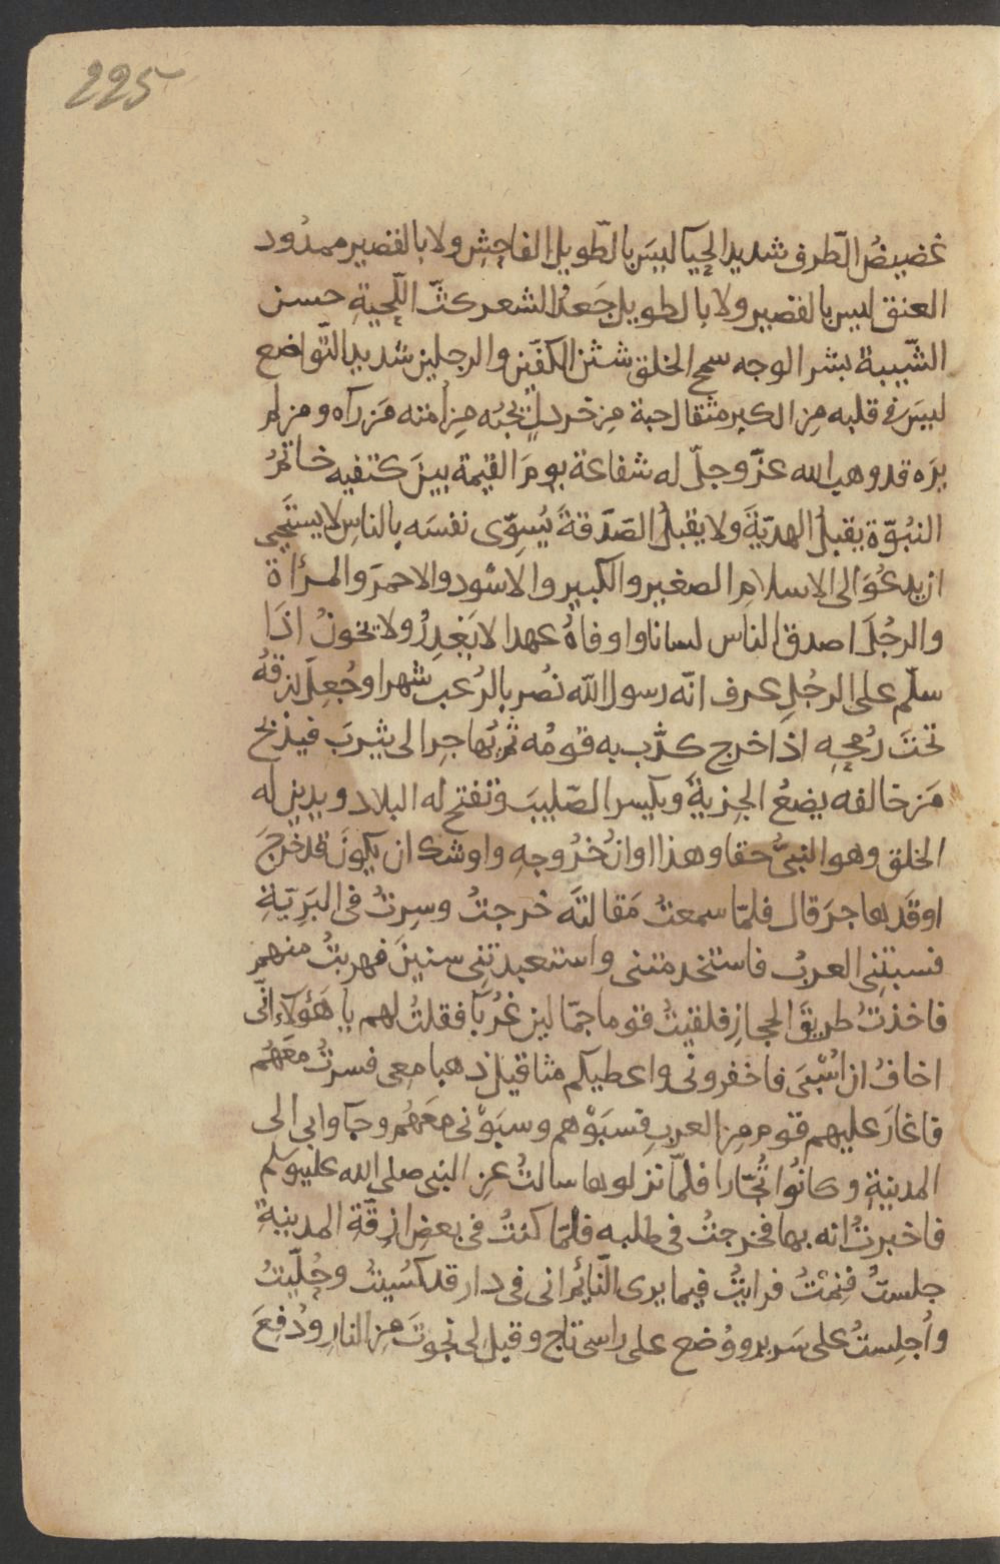 225
غضيضُ الطّرف شديد الحيآ ليسَ بالطّويل الفاحِش ولا بالقصير ممدُود
العنق ليس بالقصير ولا بالطويل جَعدُ الشعر كثّ اللّحيةِ حسن
الشّيبة بشر الوجه سمح الخلق شثن الكفّين والرجلين شديد التّواضع
ليسَ في قلبه مِن الكبر مثقال حبة مِن خردلٍ يحبّه مِن امّته مَن رآه ومن لم
يرَه قد وهب الله عزّ وجلّ له شفاعة يومَ القيمة بينَ كتفيه خاتمُ
النبُوّة يقبلُ الهديّةَ ولا يقبلُ الصّدقةَ يُسوّى نفسَه بالناسِ لا يستَحِى
ان يدعُوَ الى الاسلامِ الصغير والكبير والاسْود والاحمرَ والمرأة
والرجُلَ اصدق الناس لسانا واوفاهُ عهدا لا يَغدِرُ ولا يخونُ اذَا
سلّم على الرجُلِ عرف انّه رسول الله نصُر بالرُعب شهرا وجُعِلَ رزقهُ
تحتَ رُمحِهِ اذَا خرج كذّب به قومُه ثم يُهاجِر الى يثربَ فيذبح
مَن خالفه يضعُ الجِزيةَ ويكسر الصّليبَ وتفتح له البلاد ويدين له
الخلق وهو النبىُّ حقا وهذا اوانُ خُرُوجهِ واوشك ان يكونَ قد خرجَ
اوقَد هاجرَ قال فلمّا سمعتُ مَقالتَه خرجتُ وسِرتُ فى البَرِيّةِ
فسبتنِى العربُ فاستخدمتنى واستعبدتنِى سنينَ فهربتُ منهم
فاخذتُ طريقَ الحجازِ فلقيتُ قوما جمّالين غُربَآ فقلتُ لهم يا هَؤلآءِ انّى
اخافُ ان اُسْبَى فاخفرونى واعطيكم مثاقيل ذهبا معِى فسرتُ معَهُم
فاغارَ عليهم قوم مِن العربِ فسَبَوْهم وسبَوْنى معَهُم وجآوا بى الى
المدينةِ وكانُوا تُجّارا فلمّا نزلوها سالتُ عنِ النبى صلى الله عليه وسلم
فاخبرتُ انه بها فخرجتُ فى طلبه فلمّا كنتُ فى بعضِ ازقّةِ المدينةِ
جلستُ فنِمْتُ فرايتُ فيما يرى النّائم انى فى دار قد كسُيتُ وحُلّيتُ
واُجلِستُ على سَرير ووُضع على راسى تاج وقيل لى نجوتَ مِن النار ودُفعَ